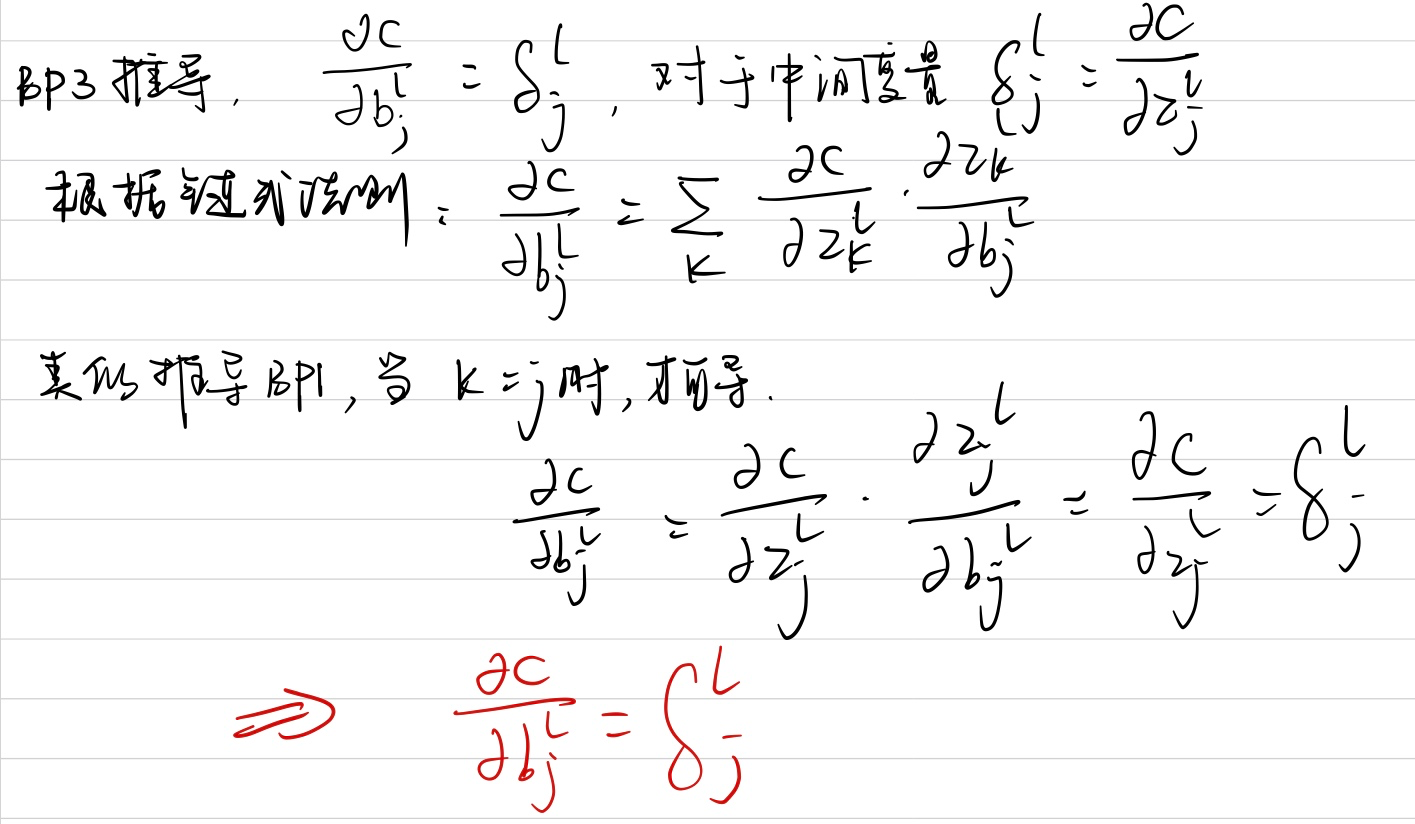 BP3推导, ∂C/∂b_j^l = δ_j^l, 对于中间变量 δ_j^l = ∂C/∂z_j^l
根据链式法则: ∂C/∂b_j^L = Σ_K ∂C/∂z_K^L · ∂z_K/∂b_j^L
类似推导BP1, 当 K = j 时, 才可导.
∂C/∂b_j^L = ∂C/∂z_j^L · ∂z_j^L/∂b_j^L = ∂C/∂z_j^L = δ_j^L
⇒ ∂C/∂b_j^L = δ_j^L